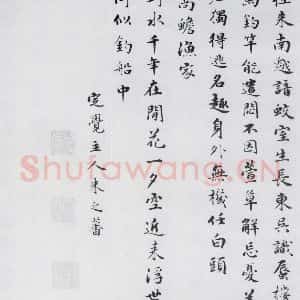 來南越諳蛟室生長東吳識蜃樓
釣竿能遣悶不因萱草解忘憂羡
獨得逃名趣身外無機任白頭
高蟾漁家
水千年在閒花一夕空近来浮世
何似釣船中
定覺主人朱之蕃
Shufawang.CN